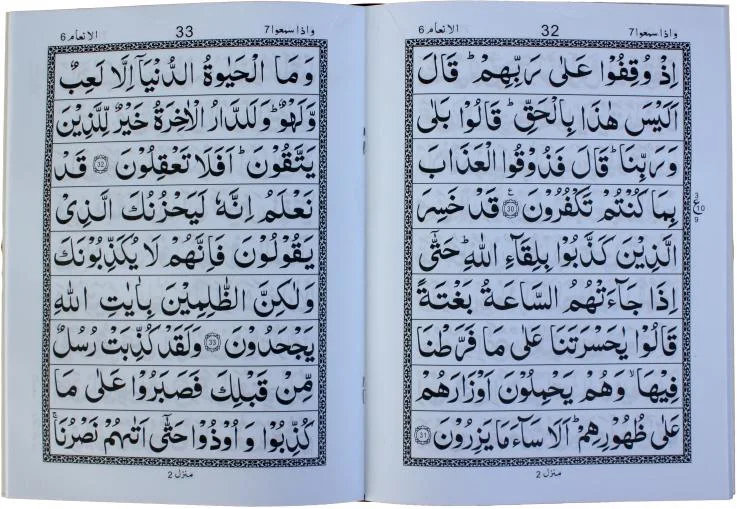 واذا سمعوا 7
32
الانعام 6
اِذْ وُقِفُوْا عَلٰى رَبِّهِمْ ؕ قَالَ
اَلَيْسَ هٰذَا بِالْحَقِّ ؕ قَالُوْا بَلٰى
وَرَبِّنَا ؕ قَالَ فَذُوْقُوا الْعَذَابَ
بِمَا كُنْتُمْ تَكْفُرُوْنَ 30 ع قَدْ خَسِرَ
3 ع 10 9
الَّذِيْنَ كَذَّبُوْا بِلِقَآءِ اللّٰهِ ؕ حَتّٰى
اِذَا جَآءَتْهُمُ السَّاعَةُ بَغْتَةً
قَالُوْا يٰحَسْرَتَنَا عَلٰى مَا فَرَّطْنَا
فِيْهَا ۙ وَهُمْ يَحْمِلُوْنَ اَوْزَارَهُمْ
عَلٰى ظُهُوْرِهِمْ ؕ اَلَا سَآءَ مَا يَزِرُوْنَ 31
منزل 2
واذا سمعوا 7
33
الانعام 6
وَمَا الْحَيٰوةُ الدُّنْيَاۤ اِلَّا لَعِبٌ
وَّلَهْوٌ ؕ وَلَلدَّارُ الْاٰخِرَةُ خَيْرٌ لِّلَّذِيْنَ
يَتَّقُوْنَ ؕ اَفَلَا تَعْقِلُوْنَ 32 قَدْ
نَعْلَمُ اِنَّهٗ لَيَحْزُنُكَ الَّذِىْ
يَقُوْلُوْنَ فَاِنَّهُمْ لَا يُكَذِّبُوْنَكَ
وَلٰكِنَّ الظّٰلِمِيْنَ بِاٰيٰتِ اللّٰهِ
يَجْحَدُوْنَ 33 وَلَقَدْ كُذِّبَتْ رُسُلٌ
مِّنْ قَبْلِكَ فَصَبَرُوْا عَلٰى مَا
كُذِّبُوْا وَ اُوْذُوْا حَتّٰۤى اَتٰىهُمْ نَصْرُنَا ۚ
منزل 2